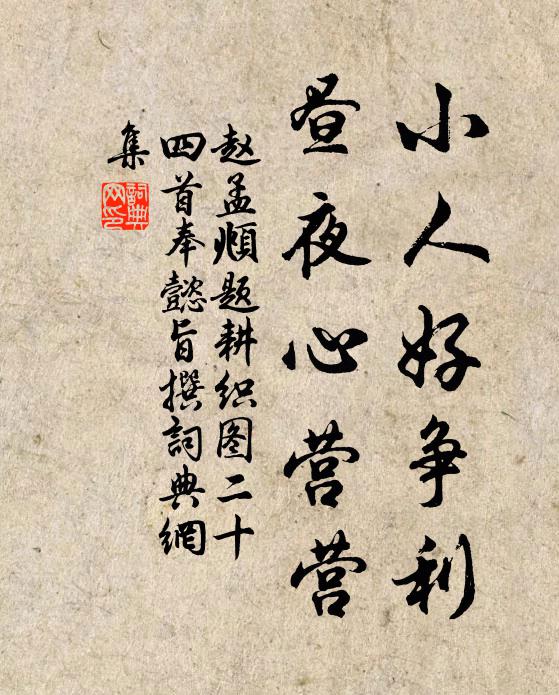 小人好争利
昼夜心营营
赵孟頫题耕织图二十
四首奉懿旨撰詞典網
集
詞典
网印